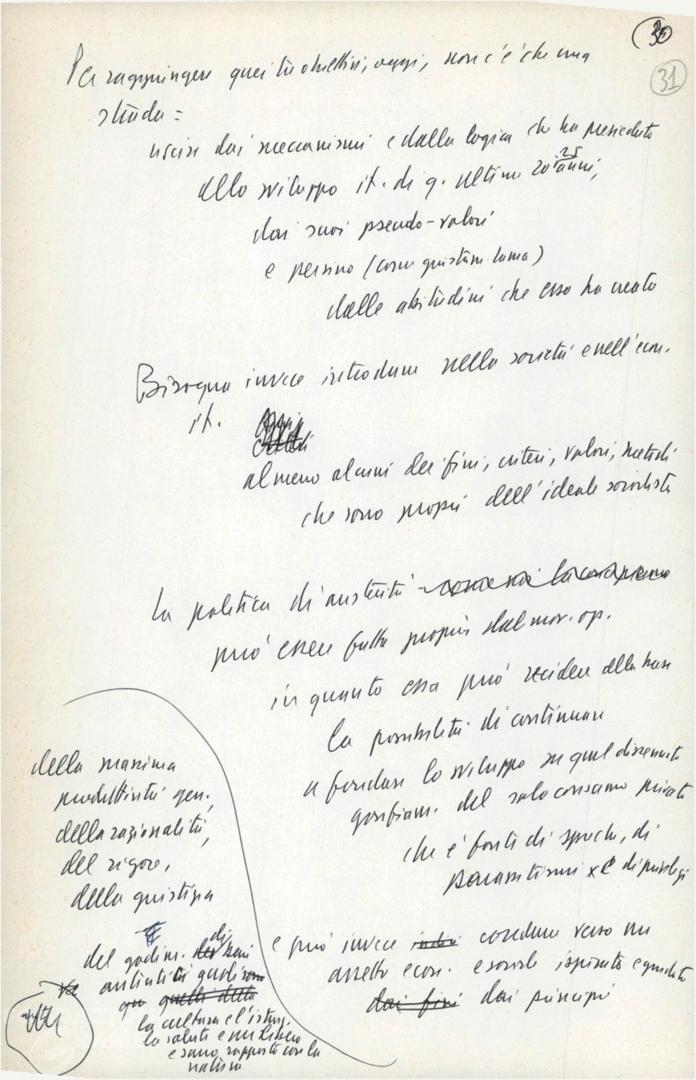 30
31
Per raggiungere questi obiettivi, oggi, non c'è che una
strada =
uscire dai meccanismi e dalla logica che ha presieduto
allo sviluppo it. di q. ultimi 20 25 anni,
dai suoi pseudo-valori
e persino (come giustam. Lama)
dalle abitudini che esso ha creato
Bisogna invece introdurre nella società e nell'econ.
it.
almeno alcuni dei fini, criteri, valori, metodi
che sono propri dell'ideale socialista
La politica di austerità
può essere fatta propria dal mov. op.
in quanto essa può recidere alla base
la possibilità di continuare
a fondare lo sviluppo su quel dissennato
gonfiam. del solo consumo privato
che è fonte di sprechi, di
parassitismi e di privilegi
e può invece condurre verso un
assetto econ. e sociale ispirato e guidato
dai fini dai principi
della massima
produttività gen.,
della razionalità,
del rigore,
della giustizia
del godim. di beni
autentici quali
quelli della
la cultura e l'istruz.
la salute e un libero
e sano rapporto con la
natura